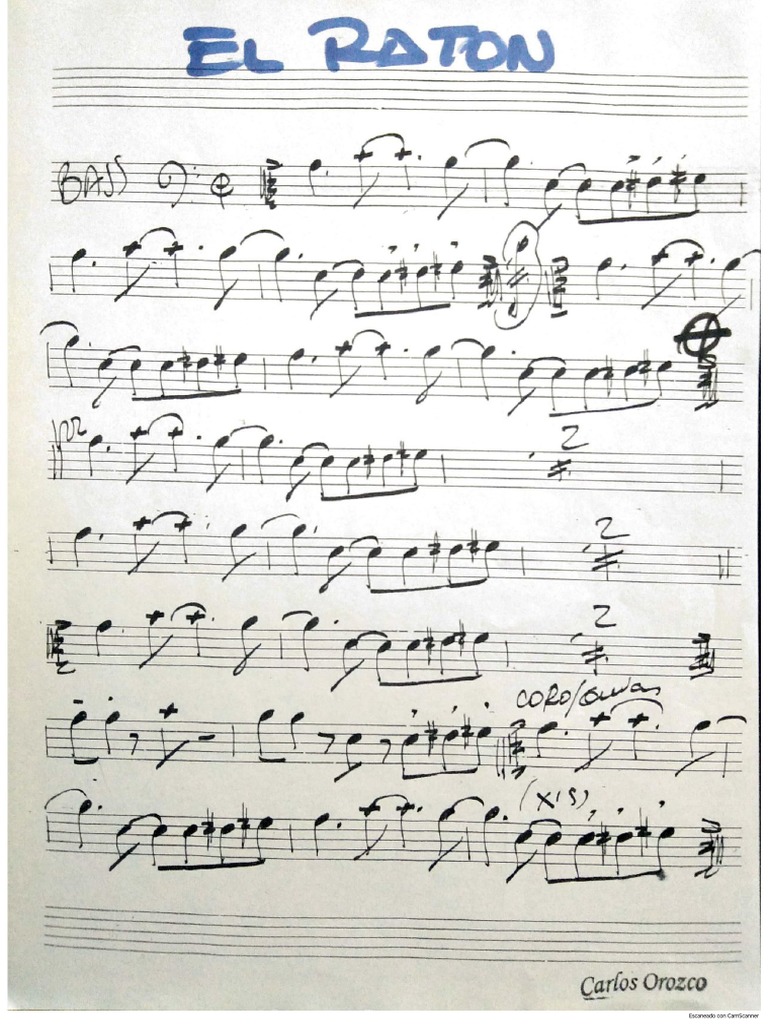 EL RATON
BASS
2
2
2
CORO/
(X'S)
Carlos Orozco
Escaneado con CamScanner